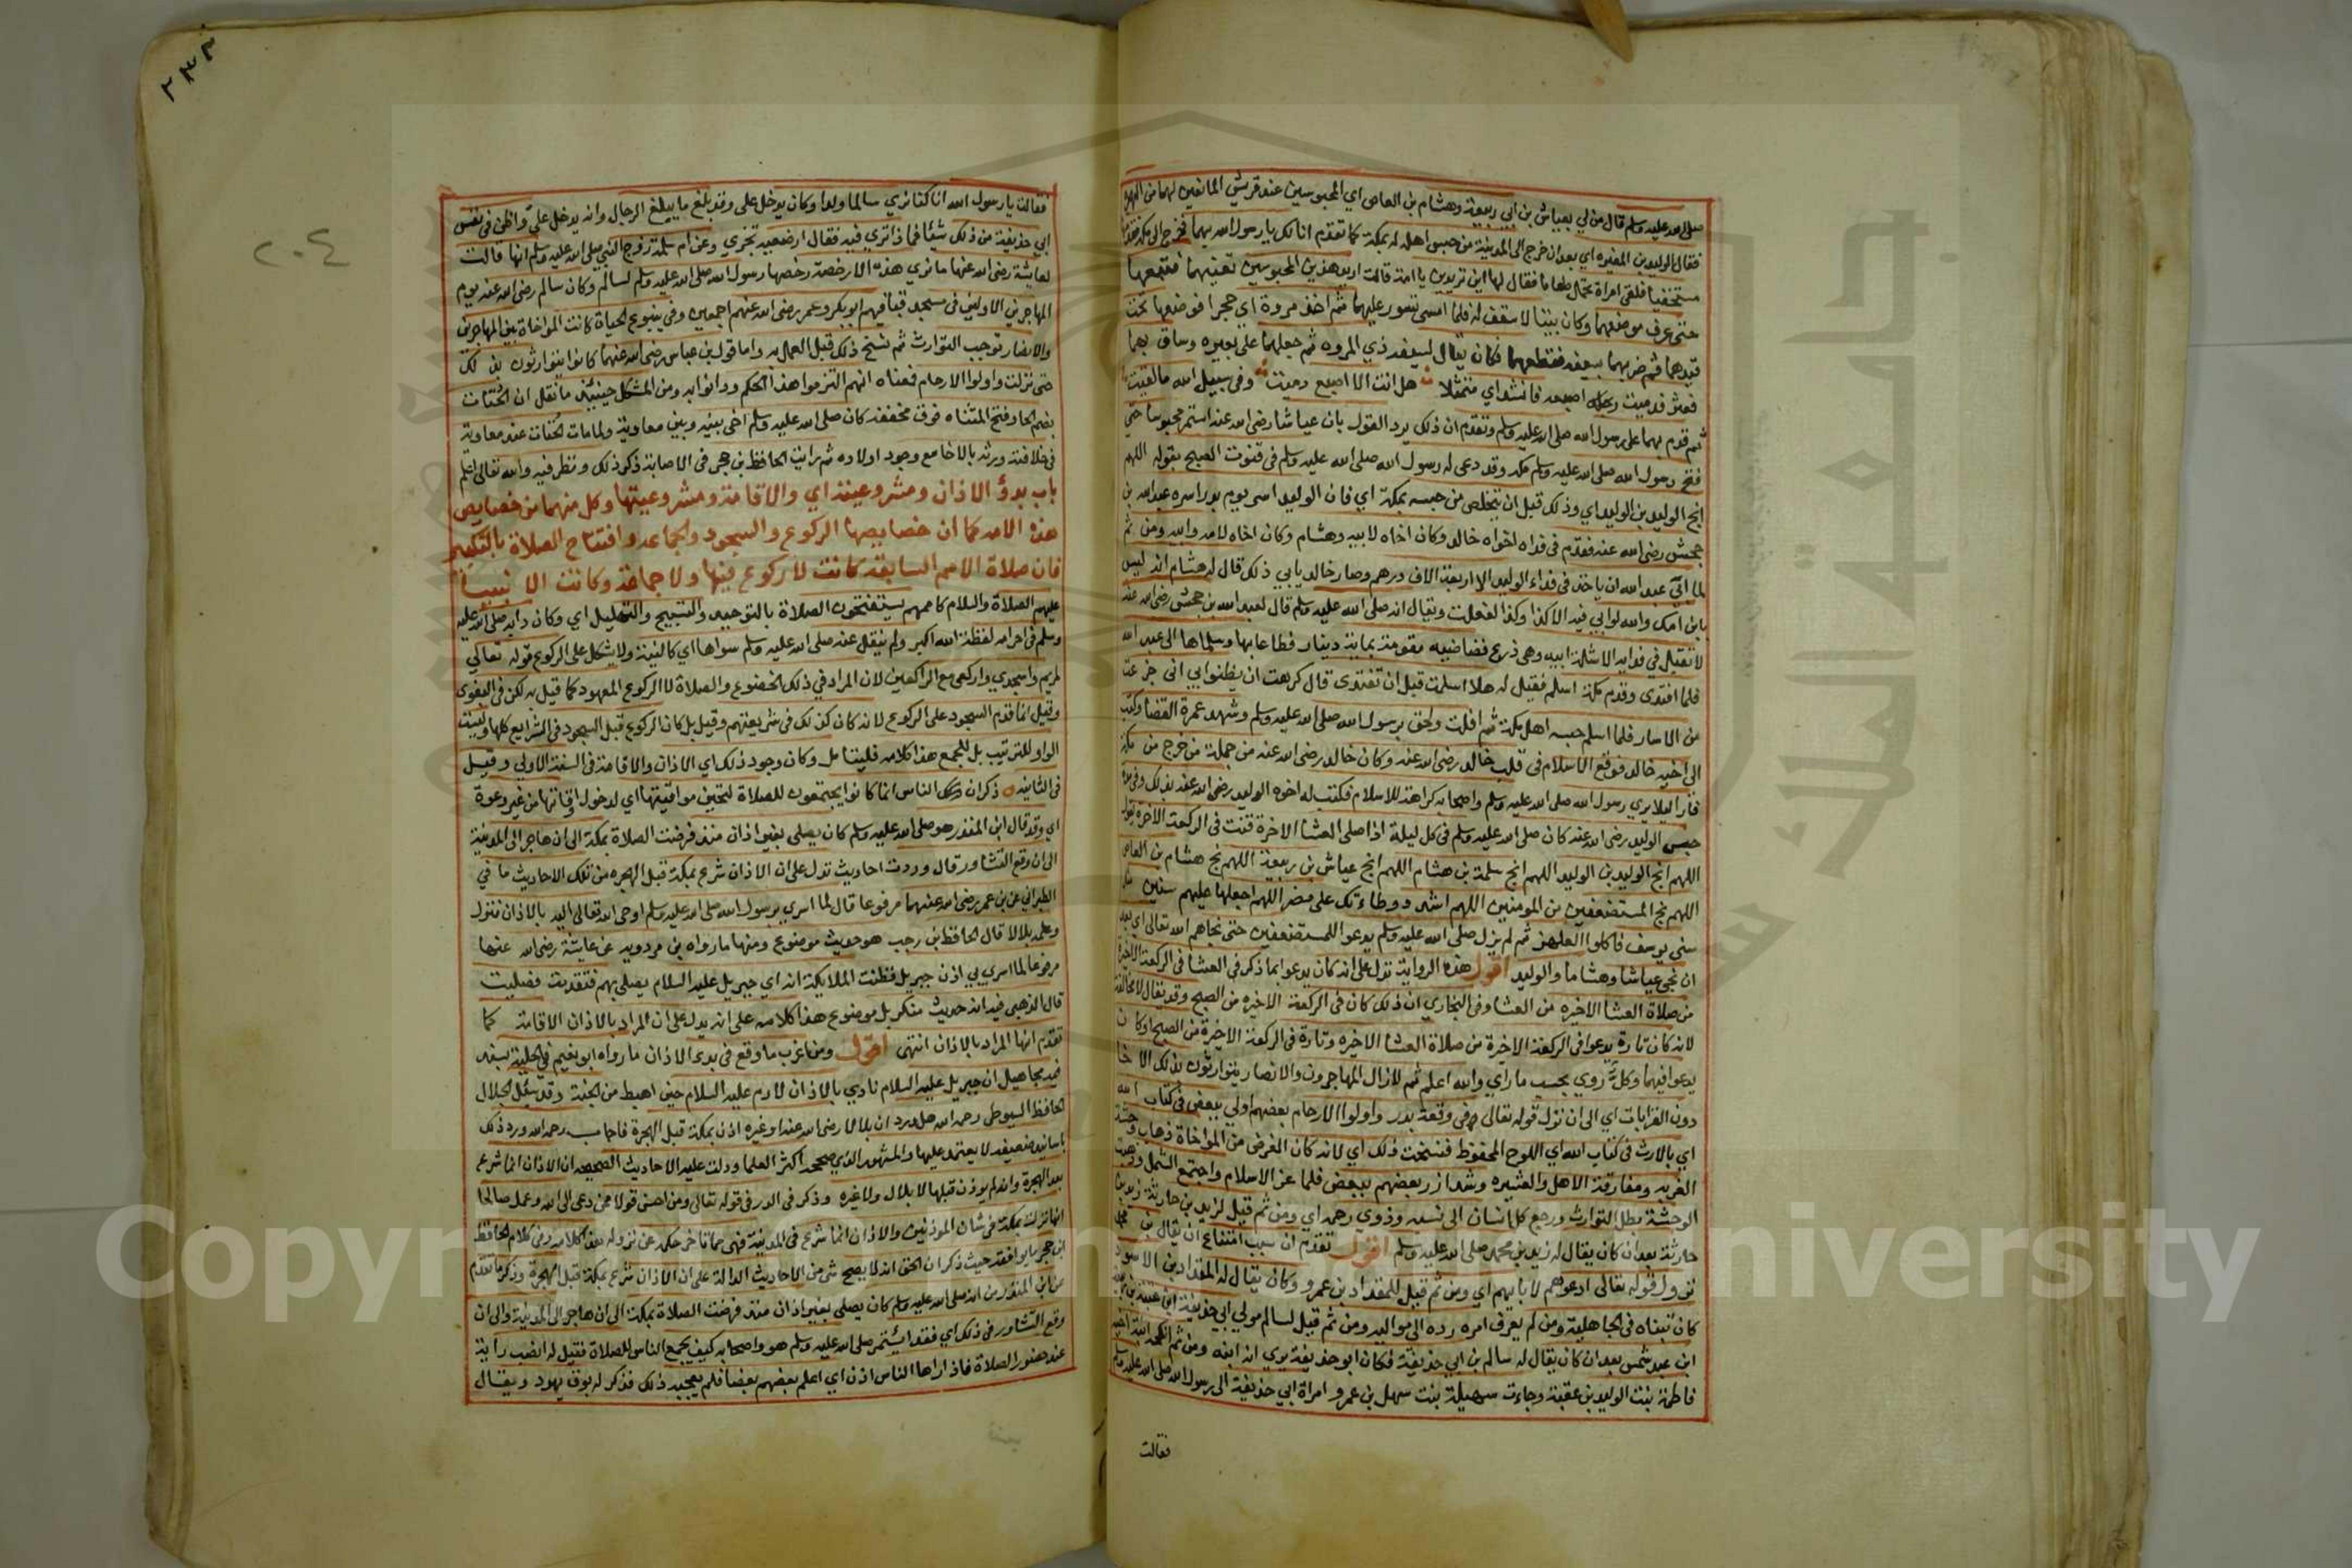 صلى الله عليه وسلم قال من لي بعياش بن ابي ربيعة وهشام بن العاص اي المحبوسين عند قريش المانعين لهما من الهجرة
فقال الوليد بن المغيره اي بعد ان خرج الى المدينة من حبس اهله له بمكة كما تقدم انا لك يا رسول الله بهما فخرج الى مكة فقدمها
مستخفيا فلقي امراة تحمل طعاما فقال لها اين تريدين يا امة الله قالت اريد هذين المحبوسين تعنيهما فتبعها
حتى عرف موضعهما وكان بيتا لا سقف له فلما امسى تسور عليهما ثم اخذ مروة اي حجرا فوضعها تحت
قيدهما ثم ضربهما بسيفه فقطعهما فكان يقال لسيفه ذي المروه ثم حملهما على بعيره وساق بهما
فعثر فدميت رجله اصبعه فانشد اي متمثلا هل انت الا اصبع دميت وفي سبيل الله مالقيت
ثم قدم بهما على رسول الله صلى الله عليه وسلم وتقدم ان ذلك يرد القول بان عياشا رضى الله عنه استمر محبوسا حتى
فتح رسول الله صلى الله عليه وسلم مكه وقد دعى له رسول الله صلى الله عليه وسلم في قنوت الصبح بقوله اللهم
انج الوليد بن الوليد اي وذلك قبل ان يتخلص من حبسه بمكة اي فان الوليد اسر يوم بدر اسره عبد الله بن
جحش رضى الله عنه فقدم في فداه اخواه خالد وكان اخاه لابيه وهشام وكان اخاه لامه وابيه ومن ثم
لما ابى عبد الله ان ياخذ في فداء الوليد الا اربعة الاف درهم وصار خالد يابي ذلك قال له هشام انه ليس
بابن امك والله لو ابي فيه الا كذا وكذا لفعلت ويقال انه صلى الله عليه وسلم قال لعبد الله بن جحش رضى الله عنه
لا تقبل في فدايه الا شكة ابيه وهى درع فضفاضه مقومة بماية دينار فطاعا بها وسلماها الى عبد الله
فلما افتدى وقدم مكة اسلم فقيل له هلا اسلمت قبل ان تفتدى قال كرهت ان يظنوا بي اني جزعت
من الاسار فلما اسلم حبسه اهل مكة ثم افلت ولحق برسول الله صلى الله عليه وسلم وشهد عمرة القضا وكتب
الى اخيه خالد فوقع الاسلام في قلب خالد رضى الله عنه وكان خالد رضى الله عنه من جملة من خرج من مكة
فارا ليلا يري رسول الله صلى الله عليه وسلم واصحابه كراهة للاسلام فكتب له اخوه الوليد رضى الله عنه بذلك وفي مدة
حبس الوليد رضى الله عنه كان صلى الله عليه وسلم في كل ليلة اذا صلى العشا الاخرة قنت في الركعة الاخرة يقول
اللهم انج الوليد بن الوليد اللهم انج سلمة بن هشام اللهم انج عياش بن ربيعة اللهم نج هشام بن العاص
اللهم نج المستضعفين من المومنين اللهم اشدد وطاءتك على مضر اللهم اجعلها عليهم سنين مثل
سني يوسف فاكلوا العلهز ثم لم يزل صلى الله عليه وسلم يدعو اللمستضعفين حتى نجاهم الله تعالى اي بعد
ان نجى عياشا وهشاما والوليد اقول هذه الرواية تدل على انه كان يدعو ابما ذكر في العشا في الركعة الاخيرة
من صلاة العشا الاخيره من العشا وفي البخاري ان ذلك كان في الركعة الاخيره من الصبح وقد يقال لا مخالفة
لانه كان تارة يدعوا في الركعة الاخيرة من صلاة العشا الاخيره وتارة في الركعة الاخيرة من الصبح او كان
يدعو افيهما وكل روي بحسب ما راي والله اعلم ثم لازال المهاجرون والانصار يتوارثون بذلك الاخا
دون القرابات اي الى ان نزل قوله تعالى في وقعة بدر واولوا الارحام بعضهم اولي ببعض في كتاب الله
اي بالارث في كتاب الله اي اللوح المحفوظ فنسخت ذلك اي لانه كان الغرض من المواخاة ذهاب وحشة
الغربه ومفارقة الاهل والعشيره وشد ازر بعضهم ببعض فلما عز الاسلام واجتمع الشمل وذهبت
الوحشة بطل التوارث ورجع كل انسان الى نسبه وذوي رحمه اي ومن ثم قيل لزيد بن حارثة زيد بن
حارثة بعد ان كان يقال له زيد بن محمد صلى الله عليه وسلم اقول تقدم ان سبب امتناع ان يقال بن محمد
نزول قوله تعالى ادعوهم لابايهم اي ومن ثم قيل للمقداد بن عمرو وكان يقال له المقداد بن الاسود
كان تبناه في الجاهلية ومن لم يعرف امره رده الى مواليه ومن ثم قيل لسالم مولي ابي حذيفة ابن عتبة بن ربيعة
ابن عبد شمس بعد ان كان يقال له سالم بن ابي حذيفة فكان ابو حذيفة يري انه ابنه ومن ثم انكحه ابنة اخيه
فاطمة بنت الوليد بن عقبة وجاءت سهيلة بنت سهل بن عمرو امراة ابي حذيفة الى رسول الله صلى الله عليه وسلم
فقالت
٢٣٣
٢٠٤
فقالت يا رسول الله انا كنا نري سالما ولدا وكان يدخل على وقد بلغ ما يبلغ الرجال وانه يدخل علي واظن في نفس
ابي حذيفة من ذلك شيئا فما ذا تري فيه فقال ارضعيه تحرمي وعن ام سلمة زوج النبي صلى الله عليه وسلم انها قالت
لعايشة رضى الله عنها ما نري هذه الا رخصة رخصها رسول الله صلى الله عليه وسلم لسالم وكان سالم رضى الله عنه يوم
المهاجرين الاولين في مسجد قبا فيهم ابو بكر وعمر رضى الله عنهم اجمعين وفي ينبوع الحياة كانت المواخاة بين المهاجرين
والانصار توجب التوارث ثم نسخ ذلك قبل العمل به واما قول بن عباس رضى الله عنهما كانوا يتوارثون بذلك
حتى نزلت واولوا الارحام فمعناه انهم التزموا هذا الحكم ودانوا به ومن المشكل حينيذ ما نقل ان الحتات
بضم الحا وفتح المثناه فوق مخففه كان صلى الله عليه وسلم اخى بينه وبين معاوية ولما مات الحتات عند معاوية
في خلافته ورثه بالاخا مع وجود اولاده ثم رايت الحافظ بن حجر في الاصابة ذكر ذلك ونظر فيه والله تعالى اعلم
باب بدؤ الاذان ومشروعيته اي والاقامة ومشروعيتها وكل منهما من خصايص
هذه الامه كما ان خصايصها الركوع والسجود والجماعه وافتتاح الصلاة بالتكبير
فان صلاة الامم السابقة كانت لا ركوع فيها ولا جماعة وكانت الا نبيا
عليهم الصلاة والسلام كاممهم يستفتحون الصلاة بالتوحيد والتسبيح والتهليل اي وكان دابه صلى الله عليه
وسلم في احرامه لفظة الله اكبر ولم ينقل عنه صلى الله عليه وسلم سواها اي كالنية ولا يشكل على الركوع قوله تعالي
لمريم واسجدي واركعي مع الراكعين لان المراد في ذلك الخضوع والصلاة لا الركوع المعهود كما قيل به لكن في البغوى
وقيل انما قدم السجود على الركوع لانه كان كذلك في شريعتهم وقيل بل كان الركوع قبل السجود في الشرايع كلها وليست
الواو للترتيب بل للجمع هذا كلامه فليتامل وكان وجود ذلك اي الاذان والاقامة في السنة الاولي وقيل
في الثانية ذكر ان الناس انما كانوا يجتمعون للصلاة لتحين مواقيتها اي لدخول اوقاتها من غير دعوة
اي وقد قال ابن المنذر هو صلى الله عليه وسلم كان يصلى بغير اذان منذ فرضت الصلاة بمكة الى ان هاجر الى المدينة
الى ان وقع التشاور قال ووردت احاديث تدل على ان الاذان شرع بمكة قبل الهجره من تلك الاحاديث ما في
الطبراني عن بن عمر رضى الله عنهما مرفوعا قال لما اسري برسول الله صلى الله عليه وسلم اوحى الله تعالى اليه بالاذان فنزل
وعلمه بلالا قال الحافظ بن رجب هو حديث موضوع ومنها ما رواه بن مردويه عن عايشة رضى الله عنها
مرفوعا لما اسري بي اذن جبريل فظنت الملايكة انه اي جبريل عليه السلام يصلى بهم فتقدمت فصليت
قال الذهبي فيه انه حديث منكر بل موضوع هذا كلامه على انه يدل على ان المراد بالاذان الاقامة كما
تقدم انها المراد بالاذان انتهى اقول ومن اغرب ما وقع في بدى الاذان ما رواه ابو نعيم في الحلية بسند
فيه مجاهيل ان جبريل عليه السلام نادي بالاذان لادم عليه السلام حين اهبط من الجنة وقد سئل الجلال
الحافظ السيوطي رحمه الله هل ورد ان بلالا رضى الله عنه او غيره اذن بمكة قبل الهجرة فاجاب رحمه الله ورد ذلك
باسانيد ضعيفه لا يعتمد عليها والمشهور الذي صححه اكثر العلما ودلت عليه الاحاديث الصحيحه ان الاذان انما شرع
بعد الهجرة وانه لم يوذن قبلها لا بلال ولا غيره وذكر في الدر في قوله تعالى ومن احسن قولا ممن دعى الى الله وعمل صالحا
انها نزلت بمكة في شان الموذنين والاذان انما شرع في المدينة فهى مما تاخر حكمه عن نزوله هذا كلامه وفي كلام الحافظ
ابن حجر ما يوافقه حيث ذكر ان الحق انه لا يصح شى من الاحاديث الدالة على ان الاذان شرع بمكة قبل الهجرة وذكر ما تقدم
عن ابن المنذر من انه صلى الله عليه وسلم كان يصلى بغير اذان منذ فرضت الصلاة بمكة الى ان هاجر الى المدينة والى ان
وقع التشاور في ذلك اي فقد ائتمر صلى الله عليه وسلم هو واصحابه كيف يجمع الناس للصلاة فقيل له انصب راية
عند حضور الصلاة فاذا راها الناس اذن اي اعلم بعضهم بعضا فلم يعجبه ذلك فذكر له بوق يهود ويقال
Copyright © King Saud University
جامعة الملك سعود